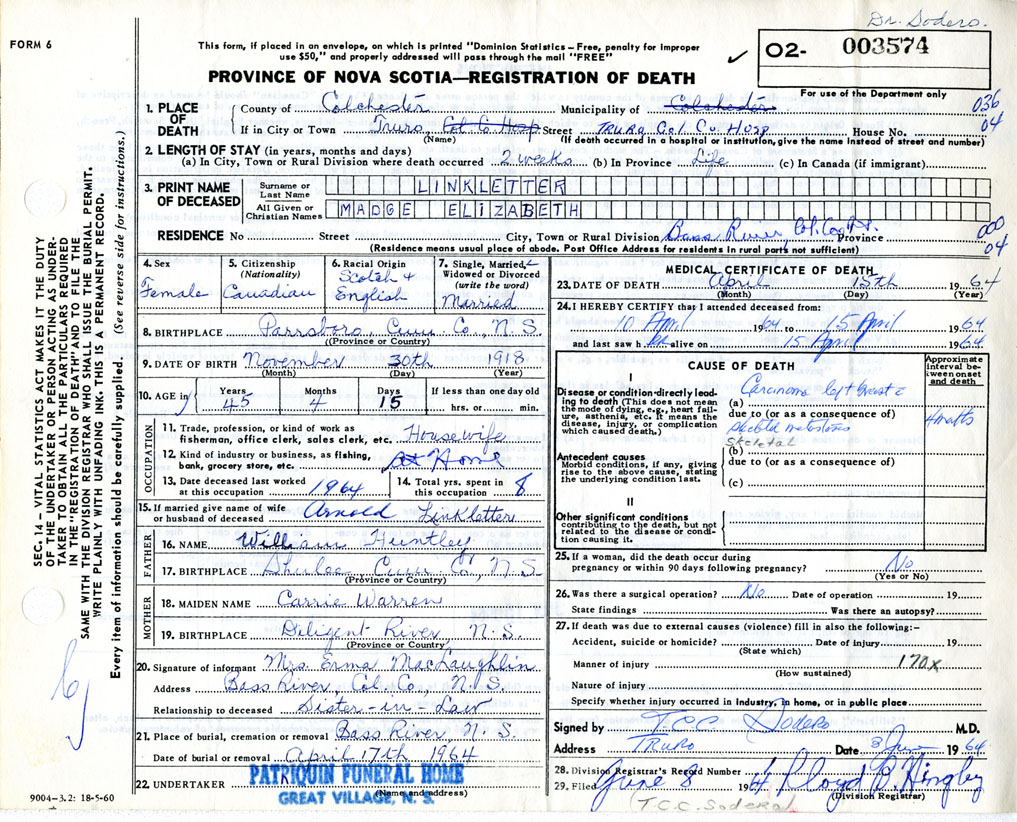 Dr. Sodero.
FORM 6
This form, if placed in an envelope, on which is printed "Dominion Statistics – Free, penalty for improper
use $50," and properly addressed will pass through the mail "FREE"
O2- 003574
For use of the Department only
PROVINCE OF NOVA SCOTIA—REGISTRATION OF DEATH
1. PLACE OF DEATH County of Colchester Municipality of Colchester 036
If in City or Town Truro, Col. Co. Hosp Street TRURO Col. Co. Hosp House No. 04
(Name) (If death occurred in a hospital or institution, give the name instead of street and number)
2. LENGTH OF STAY (in years, months and days)
(a) In City, Town or Rural Division where death occurred 2 weeks (b) In Province Life (c) In Canada (if immigrant)
3. PRINT NAME OF DECEASED
Surname or Last Name LINKLETTER
All Given or Christian Names MADGE ELIZABETH
RESIDENCE No Street City, Town or Rural Division Bass River, Col. Co., N.S. Province 000
(Residence means usual place of abode. Post Office Address for residents in rural parts not sufficient) 04
4. Sex Female
5. Citizenship (Nationality) Canadian
6. Racial Origin Scotch + English
7. Single, Married, Widowed or Divorced (write the word) Married
8. BIRTHPLACE Parrsboro, Cum. Co., N.S.
(Province or Country)
9. DATE OF BIRTH November 30th 1918
(Month) (Day) (Year)
10. AGE in Years 45 Months 4 Days 15 If less than one day old hrs. or min.
OCCUPATION
11. Trade, profession, or kind of work as fisherman, office clerk, sales clerk, etc. Housewife
12. Kind of industry or business, as fishing, bank, grocery store, etc. At Home
13. Date deceased last worked at this occupation 1964
14. Total yrs. spent in this occupation 8
15. If married give name of wife or husband of deceased Arnold Linkletter
FATHER
16. NAME William Huntley
17. BIRTHPLACE Shulee Cum Co., N.S.
(Province or Country)
MOTHER
18. MAIDEN NAME Carrie Warren
19. BIRTHPLACE Diligent River, N.S.
(Province or Country)
20. Signature of informant Mrs. Erma MacLaughlin
Address Bass River, Col. Co., N.S.
Relationship to deceased Sister-in-Law
21. Place of burial, cremation or removal Bass River N.S.
Date of burial or removal April 17th 1964
22. UNDERTAKER PATRIQUIN FUNERAL HOME
(Name and address)
GREAT VILLAGE, N. S.
9004-3.2: 18-5-60
MEDICAL CERTIFICATE OF DEATH
23. DATE OF DEATH April 15th 1964
(Month) (Day) (Year)
24. I HEREBY CERTIFY that I attended deceased from:
10 April 1964 to 15 April 1964
and last saw her alive on 15 April 1964
CAUSE OF DEATH
Approximate interval between onset and death
I
Disease or condition directly leading to death (This does not mean the mode of dying, e.g., heart failure, asthenia, etc. It means the disease, injury, or complication which caused death.)
(a) Carcinoma left breast c
due to (or as a consequence of) 4 months
skeletal metastases
Skeletal
Antecedent causes
Morbid conditions, if any, giving rise to the above cause, stating the underlying condition last.
(b)
due to (or as a consequence of)
(c)
II
Other significant conditions contributing to the death, but not related to the disease or condition causing it.
25. If a woman, did the death occur during pregnancy or within 90 days following pregnancy? No
(Yes or No)
26. Was there a surgical operation? No Date of operation 19
State findings Was there an autopsy?
27. If death was due to external causes (violence) fill in also the following:–
Accident, suicide or homicide? Date of injury 19
(State which)
Manner of injury 170X
(How sustained)
Nature of injury
Specify whether injury occurred in industry, in home, or in public place
Signed by T.C.C. Sodero M.D.
Address TRURO Date 8 June 1964
28. Division Registrar's Record Number
29. Filed June 8 1964 Lloyd B. Hingley
(Division Registrar)
T.C.C. Sodero
SEC. 14 – VITAL STATISTICS ACT MAKES IT THE DUTY
OF THE UNDERTAKER OR PERSON ACTING AS UNDER-
TAKER TO OBTAIN ALL THE PARTICULARS REQUIRED
IN THE "REGISTRATION OF DEATH" AND TO FILE THE
SAME WITH THE DIVISION REGISTRAR WHO SHALL ISSUE THE BURIAL PERMIT.
WRITE PLAINLY WITH UNFADING INK. THIS IS A PERMANENT RECORD.
Every item of information should be carefully supplied. (See reverse side for instructions.)